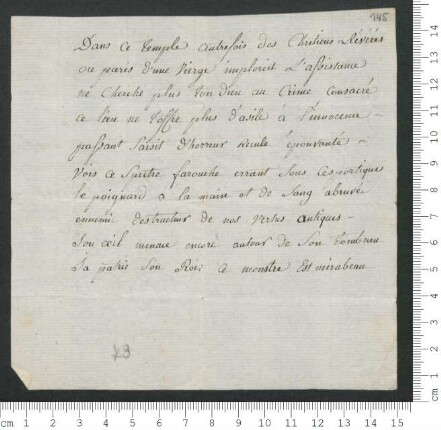 145
Dans ce temple autrefois des Chretiens Révérés
ou paris d'une vierge imploroit L'assistance
ne Cherche plus ton Dieu au Crime Consacré
ce lieu ne t'offre plus d'asile a l'innocence -
passant saisit d'horreur recule épouvanté -
Vois ce Spectre farouche errant sous ces portiques
le poignard a la main et de Sang abruvé
ennemi destructeur de nos vertus antiques -
Son œil menace encore autour de Son tombeau
Sa patrie Son Roi: ce monstre Est mirabeau
73
cm 1 2 3 4 5 6 7 8 9 10 11 12 13 14 15
cm 1 2 3 4 5 6 7 8 9 10 11 12 13 14